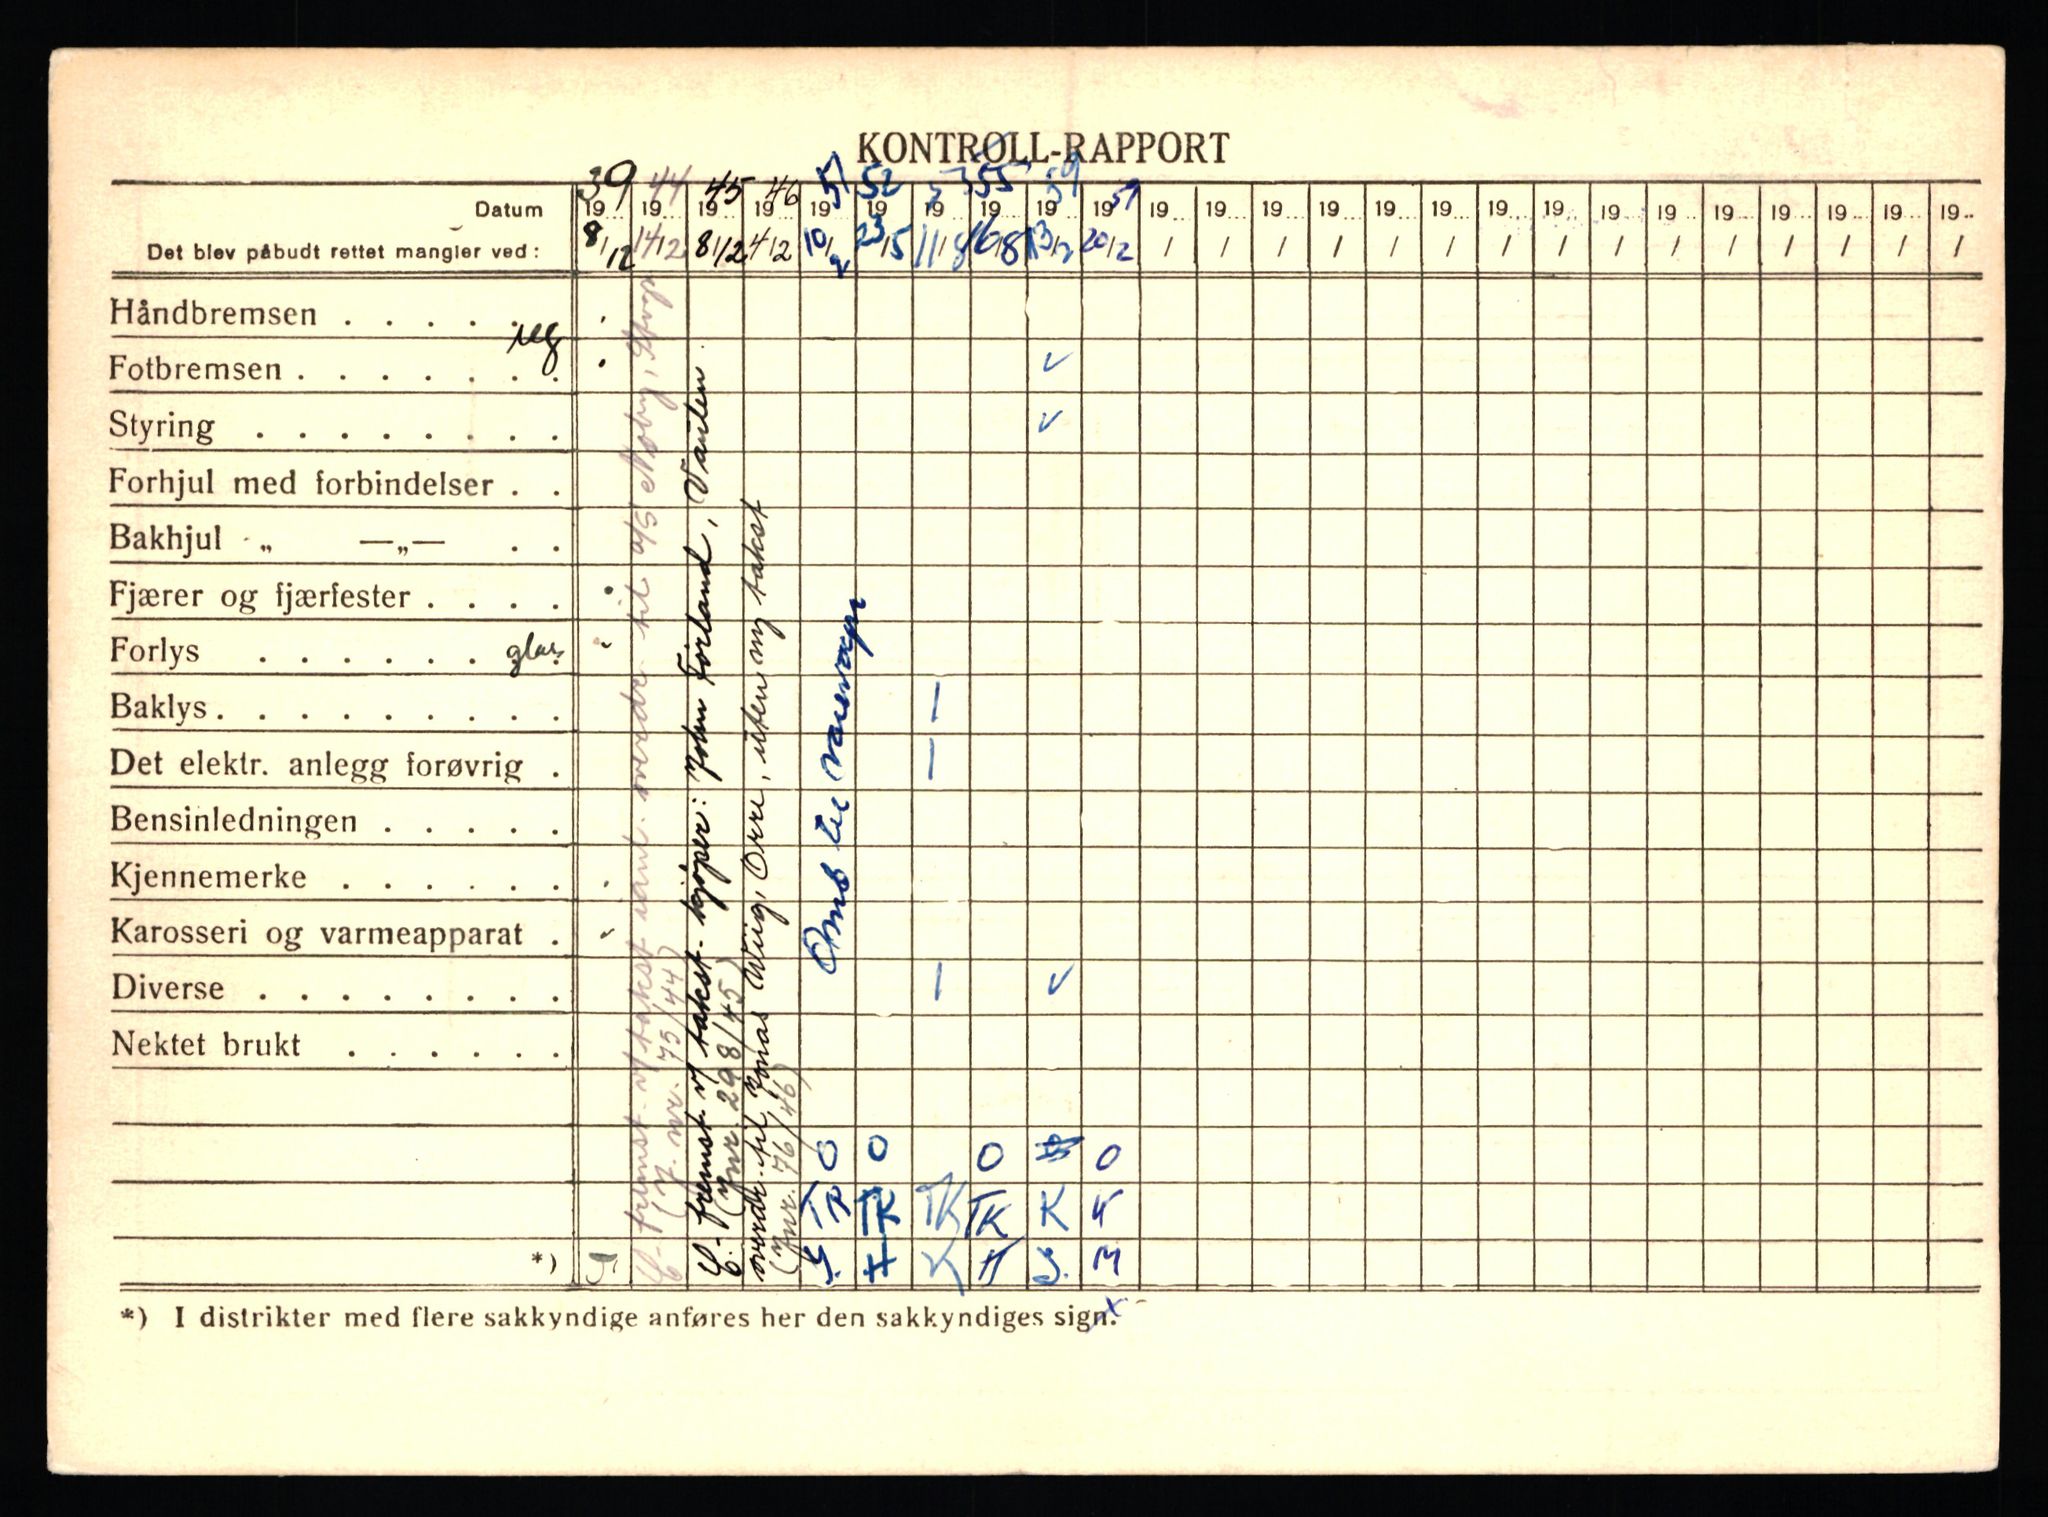 KONTROLL-RAPPORT
Datum 19 39 19 44 19 45 19 46 19 51 19 52 19 53 19 55 19 59 19 59 19 19 19 19 19 19 19 19 19 19 19 19 19 19 19
Det blev påbudt rettet mangler ved: 8/12 14/2 8/12 4/2 10/2 23/5 11/8 16/8 13/2 20/2 / / / / / / / / / / / / / / /
Håndbremsen
reg
Fotbremsen v
Styring v
Forhjul med forbindelser
Bakhjul „ —„—
Fjærer og fjærfester
Forlys glass
Baklys |
Det elektr. anlegg forøvrig |
Bensinledningen
Kjennemerke
Karosseri og varmeapparat
Diverse | v
Nektet brukt
C- fremst. v/ takst samt. overdr. til a/s
(J. nr. 75/44)
C.- fremst. v/ takst. kjøper: John Förland, Varden.
(Jnr. 298/45)
overdr. til Jonas Wiig, Orre, uten ny takst
(Jnr. 76/46)
Omb til varevogn
0 0 0 0
TK TK TK TK K K
*) J. J. H K H J. M
*) I distrikter med flere sakkyndige anføres her den sakkyndiges sign.